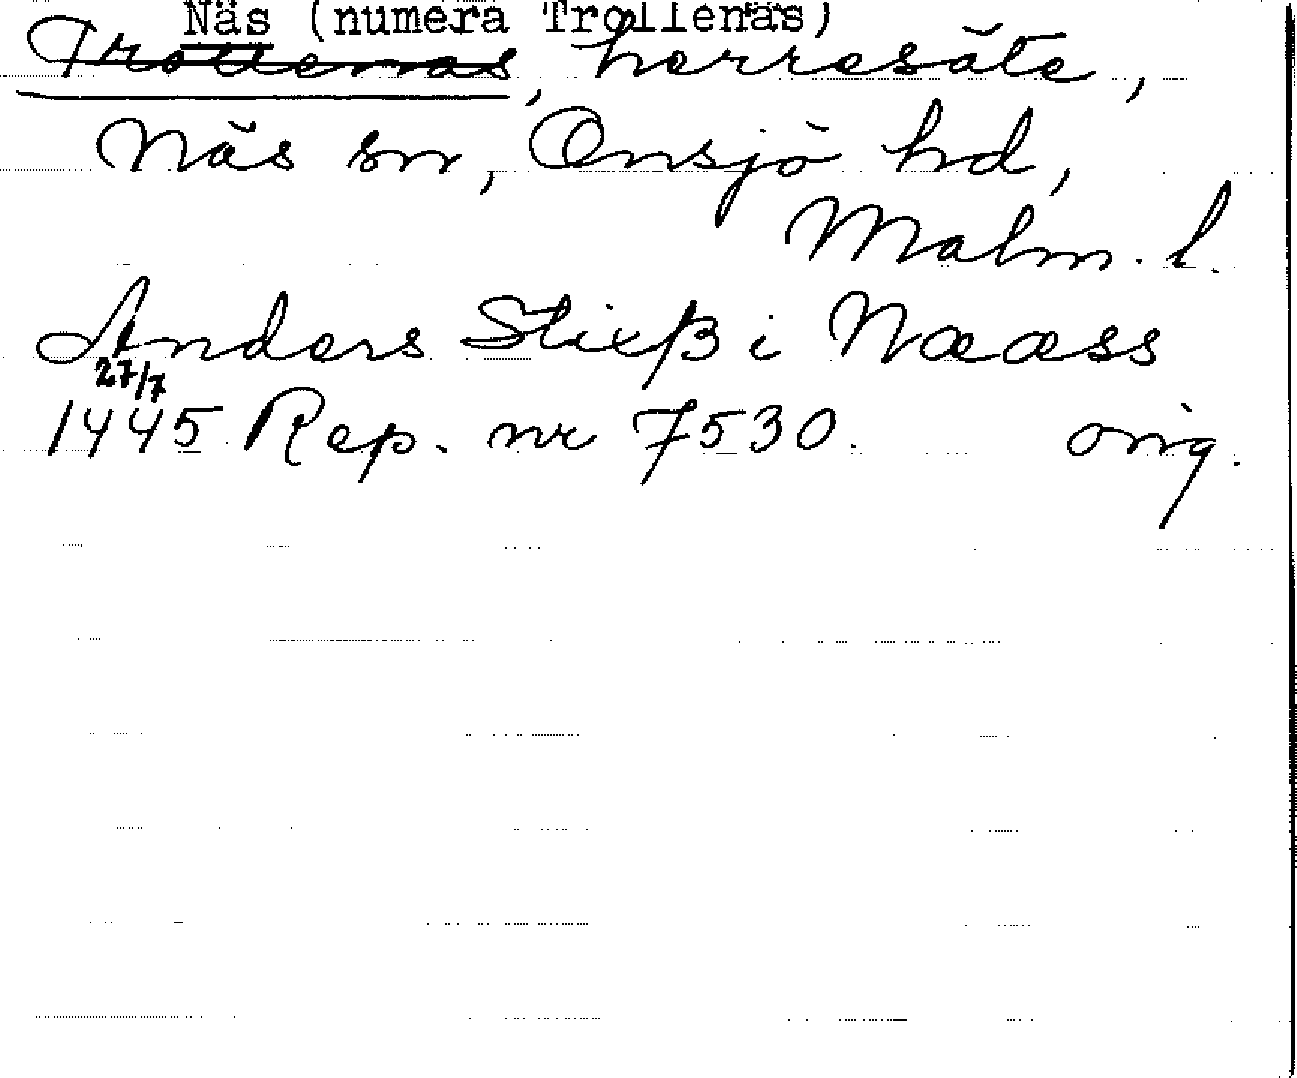 Näs (numera Trollenäs)
Trollenäs, herresäte,
Näs sn, Onsjö hd,
Malm. l.
Anders Stixß i Nææss
27/7
1445 Rep. nr 7530. orig.